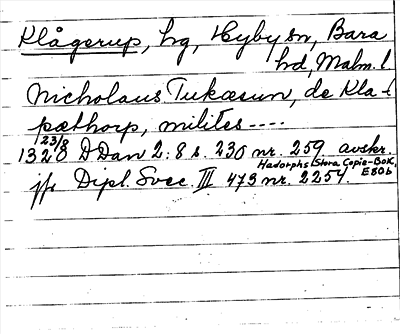 Klågerup, hg, Hyby sn, Bara
hd, Malm. l
Nicholaus Tukæsun, de Kla-
pæthorp, milites ----
23/8
1328 DDan 2:8 s. 230 nr. 259 avskr.
Hadorphs Stora Copie-Bok,
E80b
jfr Dipl. Svec. III 473 nr. 2254.